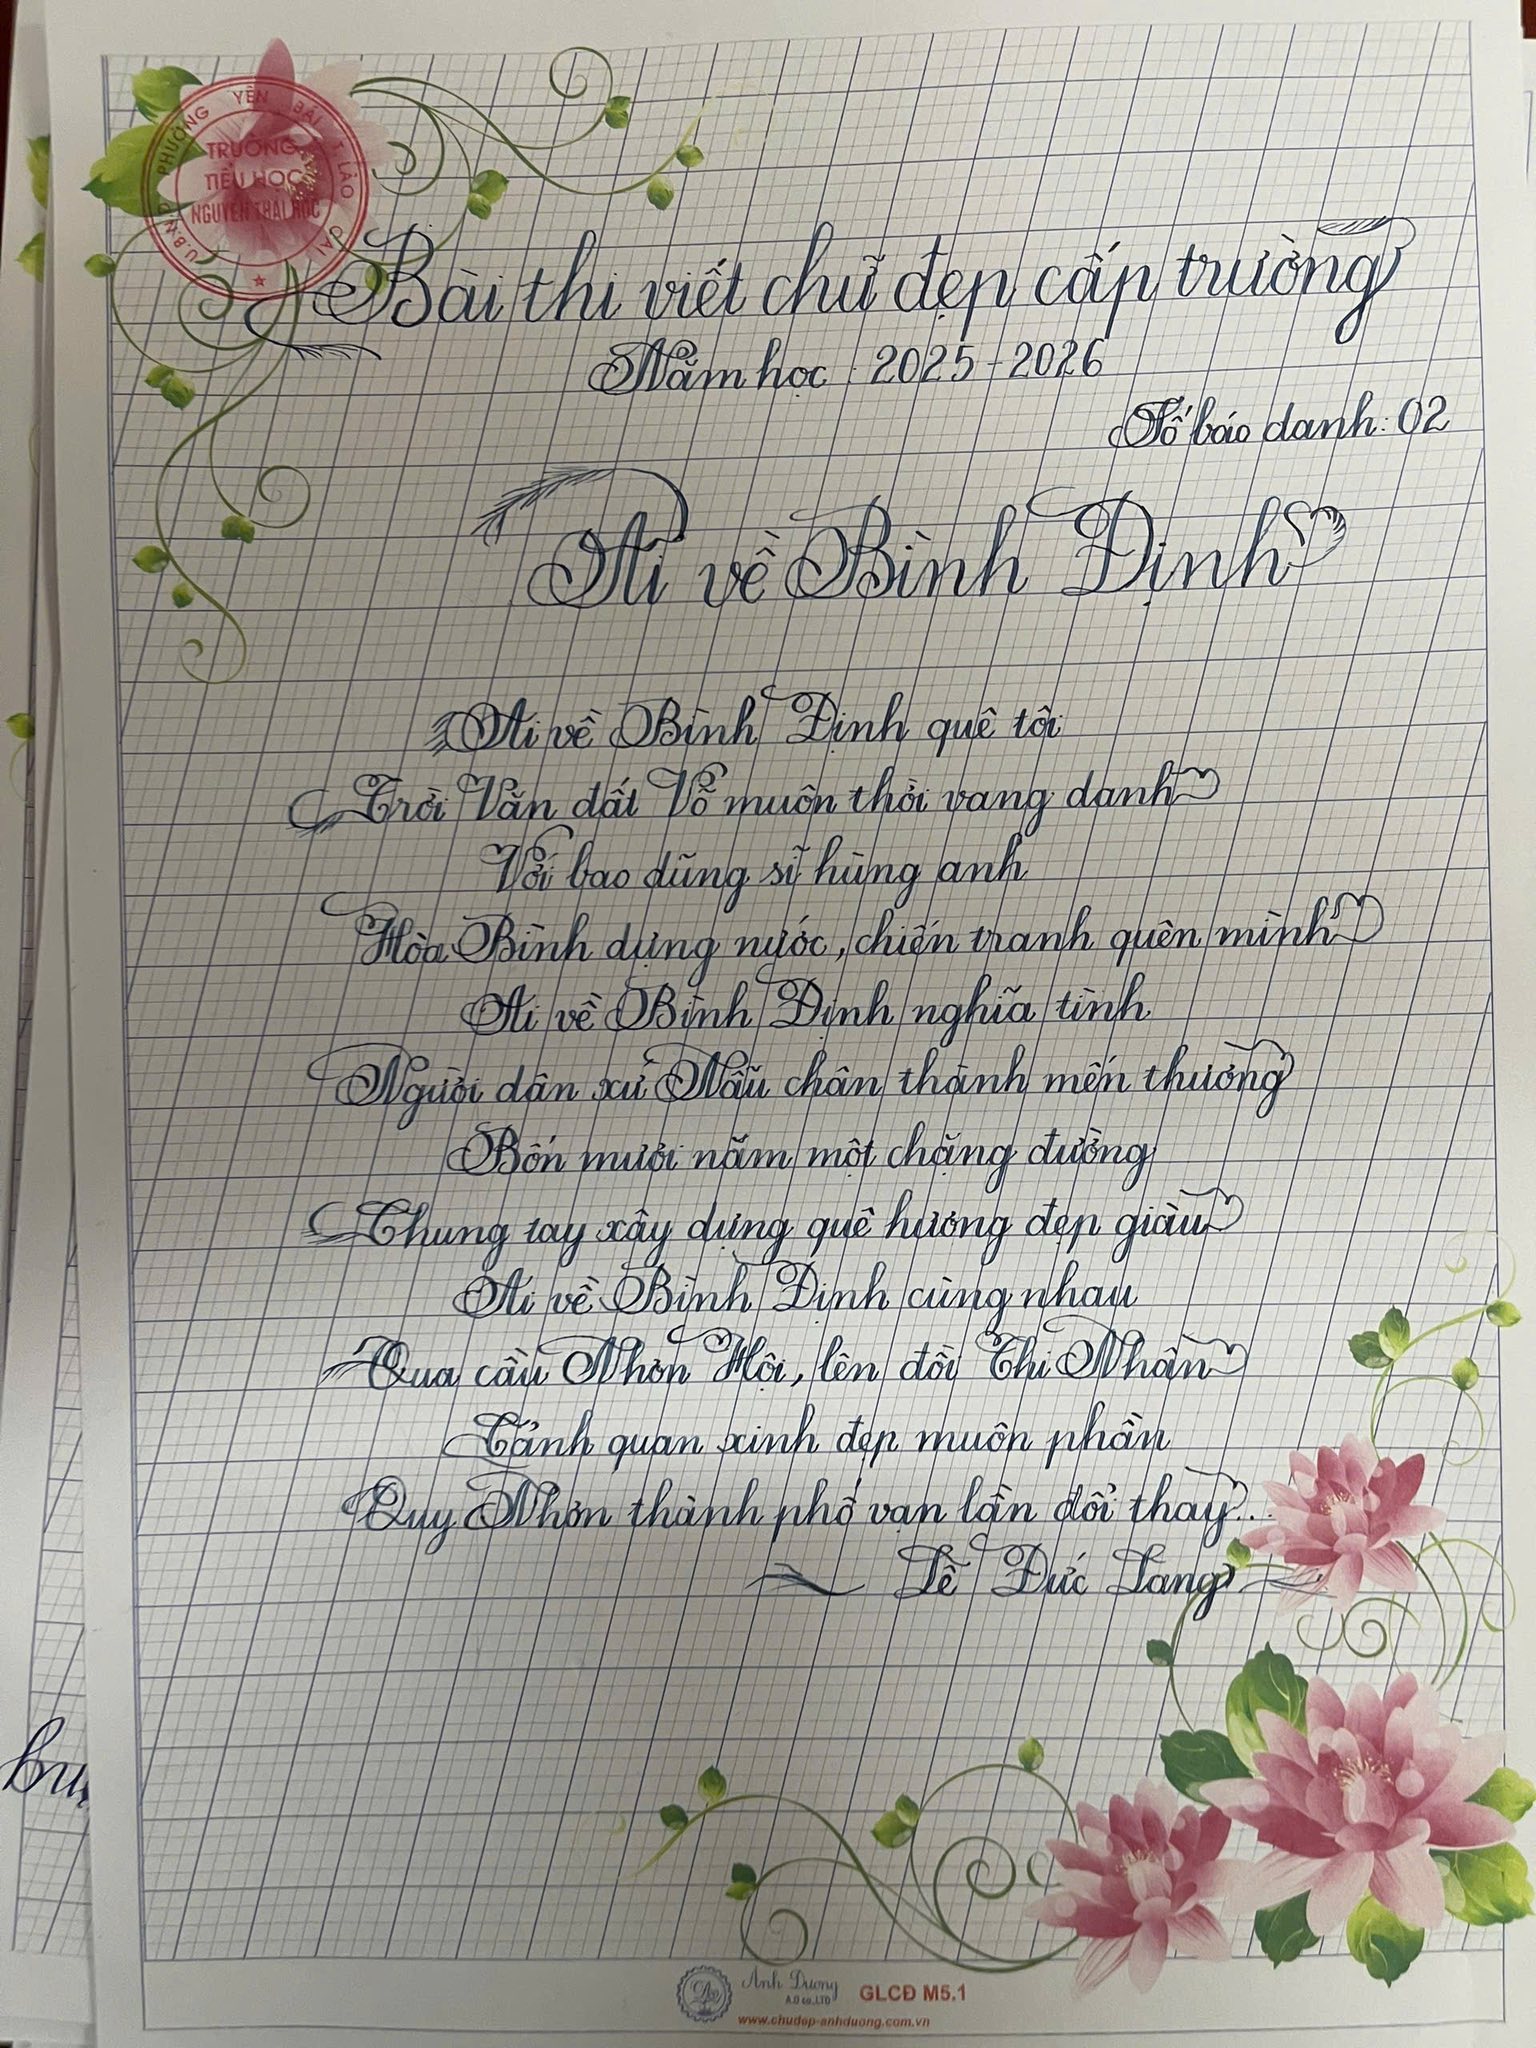 U.B.N.D PHƯỜNG YÊN BÁI T.LÀO CAI
TRƯỜNG
TIỂU HỌC
NGUYỄN THÁI HỌC
Bài thi viết chữ đẹp cấp trường
Năm học : 2025 - 2026
Số báo danh: 02
Ai về Bình Định
Ai về Bình Định quê tôi
Trời Văn đất Võ muôn thời vang danh
Với bao dũng sĩ hùng anh
Hòa Bình dựng nước, chiến tranh quên mình
Ai về Bình Định nghĩa tình
Người dân xứ Nẫu chân thành mến thương
Bốn mươi năm một chặng đường
Chung tay xây dựng quê hương đẹp giàu
Ai về Bình Định cùng nhau
Qua cầu Nhơn Hội, lên đồi Thi Nhân
Cảnh quan xinh đẹp muôn phần
Quy Nhơn thành phố vạn lần đổi thay...
Lê Đức Lang
Ánh Dương
A.D co.,LTD
GLCĐ M5.1
www.chudep-anhduong.com.vn